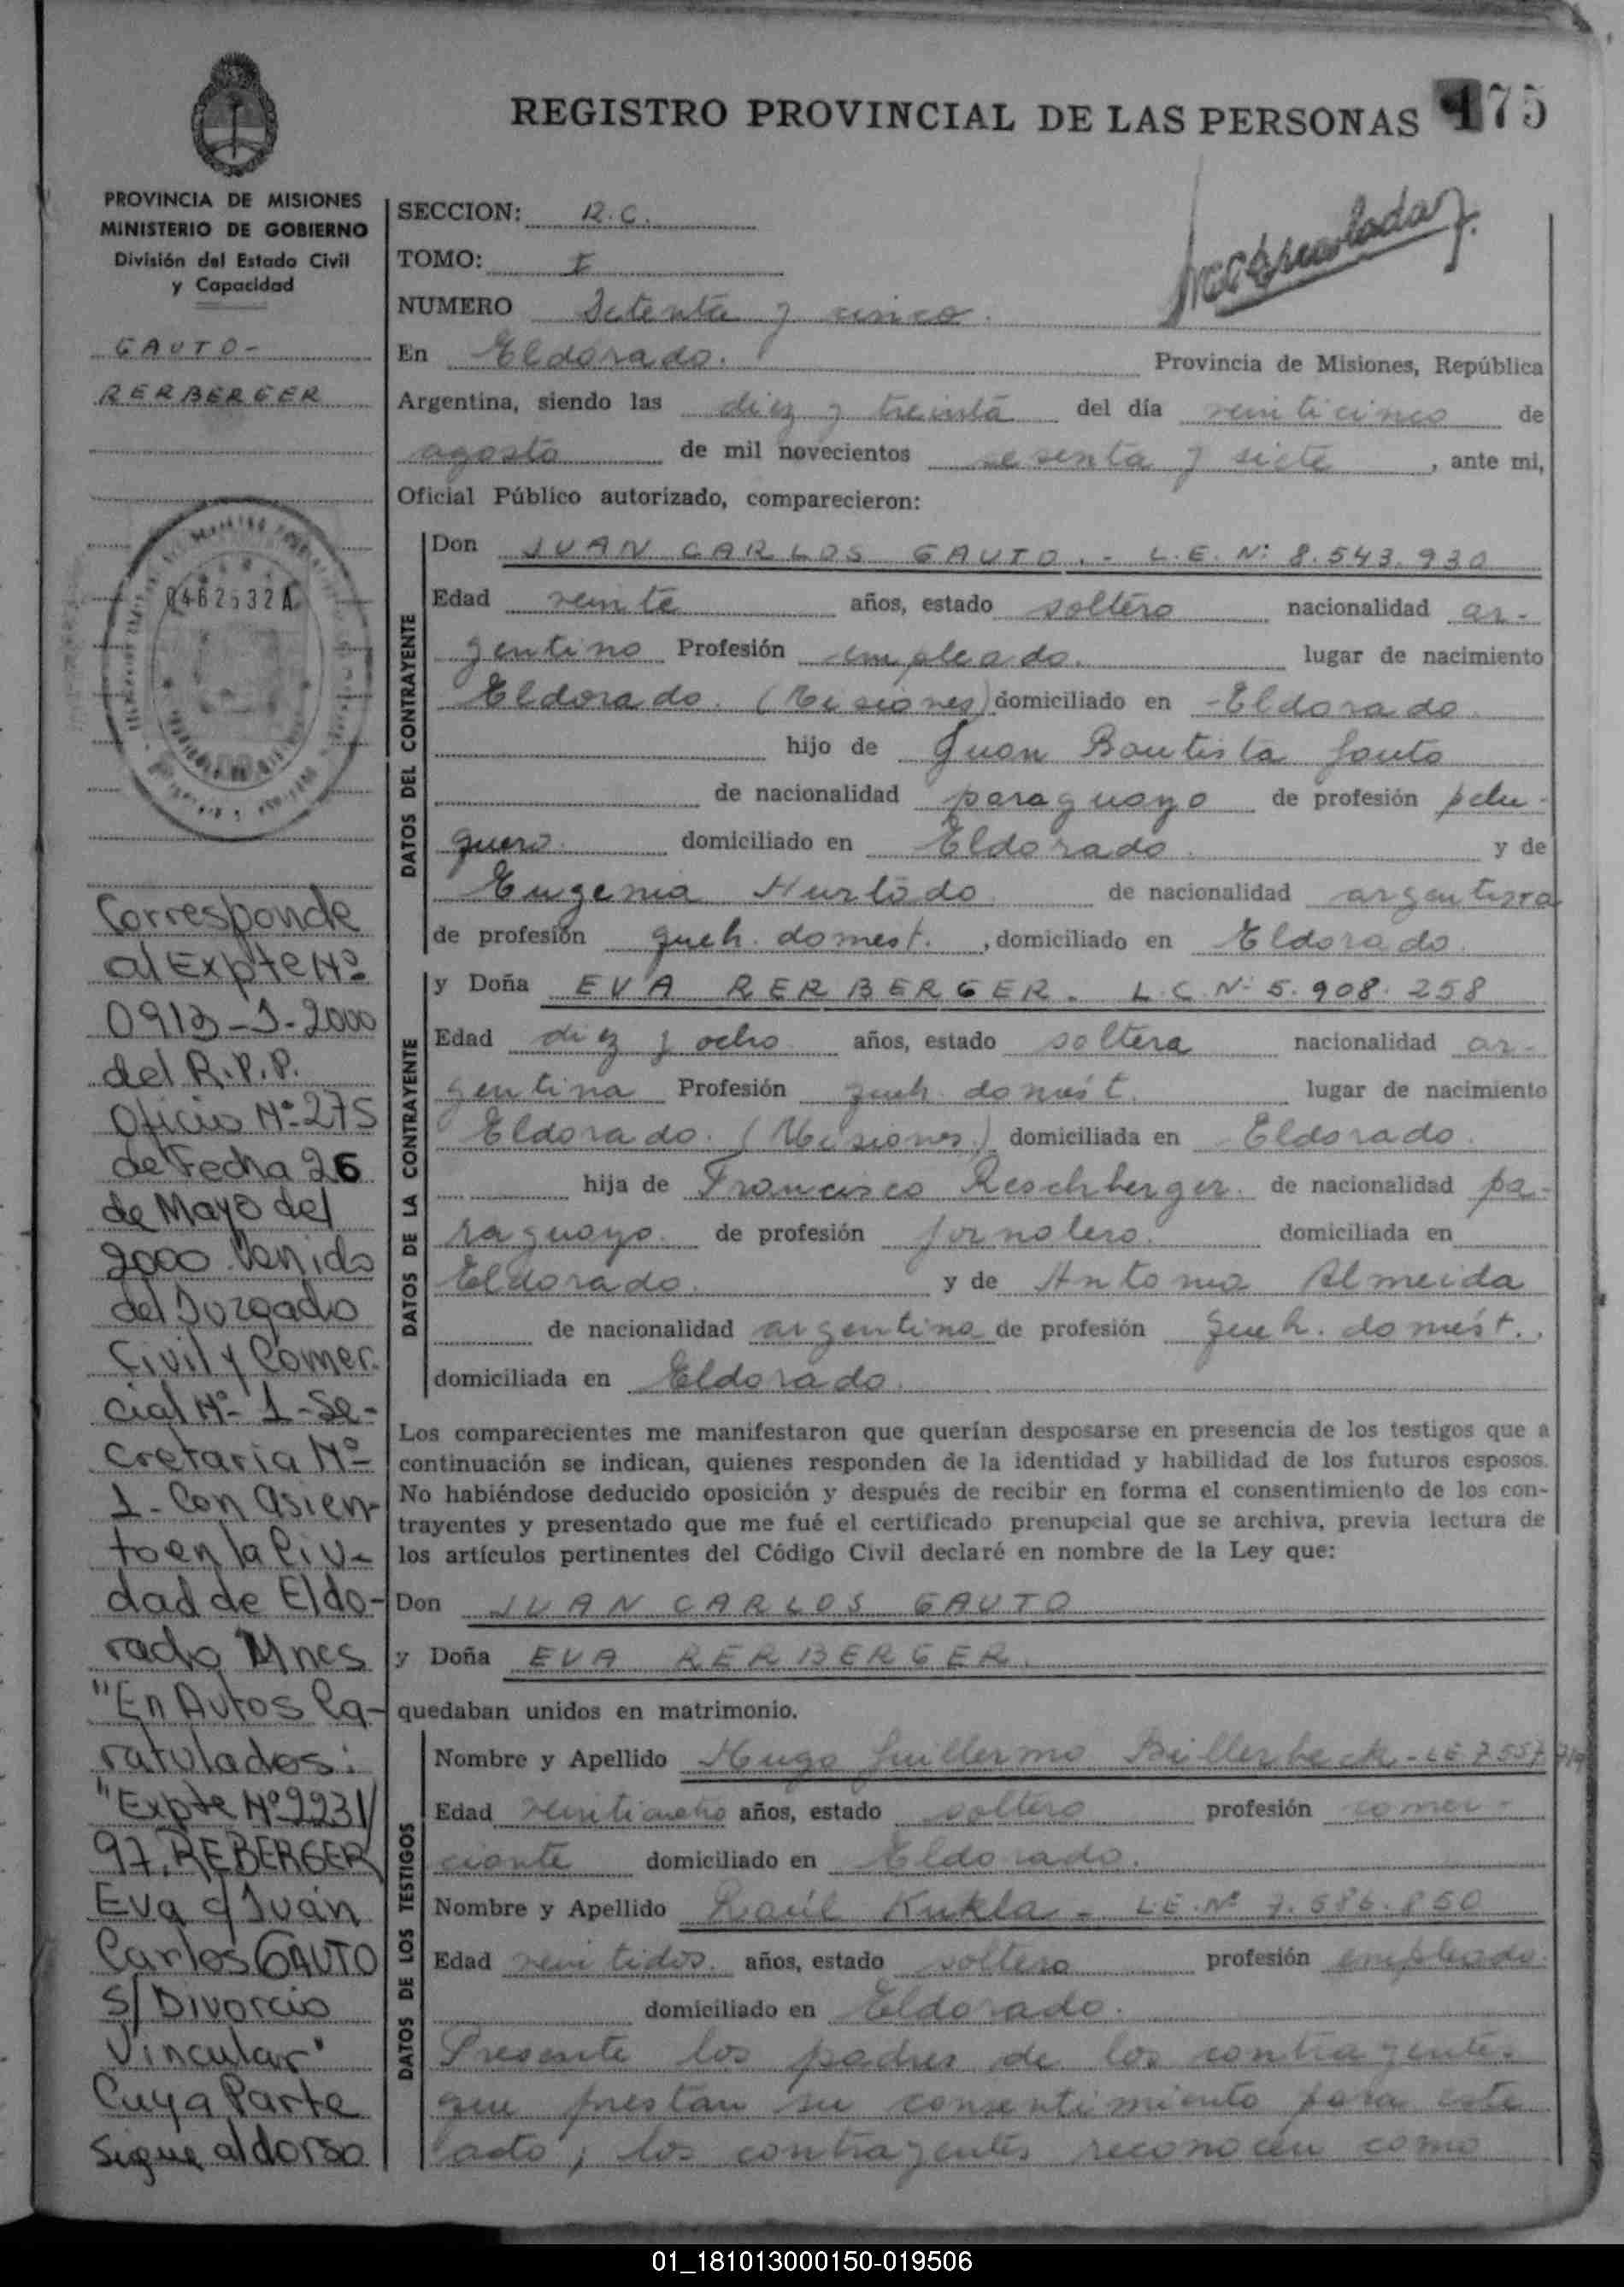 REGISTRO PROVINCIAL DE LAS PERSONAS 175
PROVINCIA DE MISIONES
MINISTERIO DE GOBIERNO
División del Estado Civil
y Capacidad
GAUTO-
RERBERGER
0462532A
Corresponde
al Expte Nº
0913-J-2000
del R.P.P.
Oficio Nº 275
de Fecha 26
de Mayo del
2000 Venido
del Juzgado
Civil y Comer.
cial Nº 1-Se-
cretaria Nº
1-Con asien-
to en la Ciu-
dad de Eldo-
rado Mnes
"En Autos Ca-
ratulados:
"Expte Nº 2231/
97. REBERGER
Eva c/ Juan
Carlos GAUTO
S/ Divorcio
Vincular"
Cuya Parte
Sigue al dorso
SECCION: R.C.
TOMO: I
NUMERO Setenta y cinco.
En Eldorado. Provincia de Misiones, República
Argentina, siendo las diez y treinta del día veinticinco de
agosto de mil novecientos sesenta y siete, ante mi,
Oficial Público autorizado, comparecieron:
DATOS DEL CONTRAYENTE
Don JUAN CARLOS GAUTO.- L.E. Nº 8.543.930
Edad veinte años, estado soltero nacionalidad ar-
gentino Profesión empleado. lugar de nacimiento
Eldorado. (Misiones) domiciliado en Eldorado
hijo de Juan Bautista Gauto
de nacionalidad paraguayo de profesión pelu-
quero. domiciliado en Eldorado. y de
Eugenia Hurtado de nacionalidad argentina
de profesión queh. domest. , domiciliado en Eldorado.
DATOS DE LA CONTRAYENTE
y Doña EVA RERBERGER. L.C. Nº 5.908.258
Edad diez y ocho años, estado soltera nacionalidad ar-
gentina Profesión queh. domést. lugar de nacimiento
Eldorado. (Misiones.) domiciliada en Eldorado.
hija de Francisco Reschberger. de nacionalidad pa-
raguayo. de profesión jornalero. domiciliada en
Eldorado. y de Antonia Almeida
de nacionalidad argentina de profesión queh. domést..
domiciliada en Eldorado.
Los comparecientes me manifestaron que querían desposarse en presencia de los testigos que a
continuación se indican, quienes responden de la identidad y habilidad de los futuros esposos.
No habiéndose deducido oposición y después de recibir en forma el consentimiento de los con-
trayentes y presentado que me fué el certificado prenupcial que se archiva, previa lectura de
los artículos pertinentes del Código Civil declaré en nombre de la Ley que:
Don JUAN CARLOS GAUTO
y Doña EVA RERBERGER.
quedaban unidos en matrimonio.
DATOS DE LOS TESTIGOS
Nombre y Apellido Hugo Guillermo Billerbeck - LE 7.557.
Edad veinticuatro años, estado soltero profesión comer-
ciante domiciliado en Eldorado.
Nombre y Apellido Raúl Kukla - LE. Nº 7.586.850
Edad veintidos. años, estado soltero profesión empleado.
domiciliado en Eldorado.
Presente los padres de los contrayentes
que prestan su consentimiento para este
acto; los contrayentes reconocen como
01_181013000150-019506